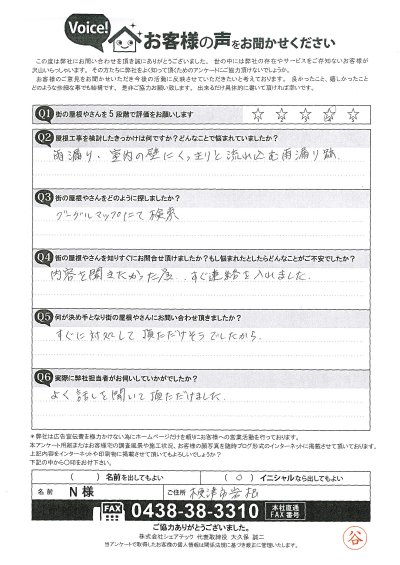 Voice! お客様の声をお聞かせください
この度は弊社にお問い合わせを頂き誠にありがとうございました。世の中には弊社の存在やサービスをご存知ないお客様が
沢山いらっしゃいます。その方たちに弊社をよく知って頂くためのアンケートにご協力頂けないでしょうか。
お客様のご意見をお聞かせいただき今後の活動に反映させていただきたいと考えております。良かったこと、嬉しかったこと
どのような些細な事でも結構です。是非ご協力お願い致します。出来るだけ具体的に書いて頂ければ幸いです。
Q1 街の屋根やさんを5段階で評価をお願いします ☆ ☆ ☆ ☆ ☆
Q2 屋根工事を検討したきっかけは何ですか?どんなことで悩まれていましたか?
雨漏り、室内の壁にくっきりと流れ込む雨漏り跡.
Q3 街の屋根やさんをどのように探しましたか?
グーグルマップにて検索
Q4 街の屋根やさんを知りすぐにお問合せ頂けましたか?もし悩まれたとしたらどんなことがご不安でしたか?
内容を聞きたかった為、すぐ連絡を入れました.
Q5 何が決め手となり街の屋根やさんにお問い合わせ頂きましたか?
すぐに対処して頂ただけそうでしたから.
Q6 実際に弊社担当者がお伺いしていかがでしたか?
よく話しを聞いて頂ただけました.
*弊社は広告宣伝費を極力かけない為にホームページだけを頼りにお客様への営業活動を行っております。
本アンケート用紙またはお客様宅の調査風景や施工状況、お客様の顔写真を随時ブログ形式のインターネットに掲載させて頂いております。
上記内容をインターネットや印刷物に掲載させて頂いてもよろしいでしょうか?
下記の中から〇印をお付下さい。
( ) 名前を出してもよい ( 〇 ) イニシャルなら出してもよい
名前 N 様 ご住所 木更津市岩根
FAX 0438-38-3310 本社直通 FAX番号
ご協力ありがとうございました。
株式会社シェアテック 代表取締役 大久保 誠二
当アンケートで取得したお客様の個人情報は関係法令に基づき厳正に管理いたします。
谷